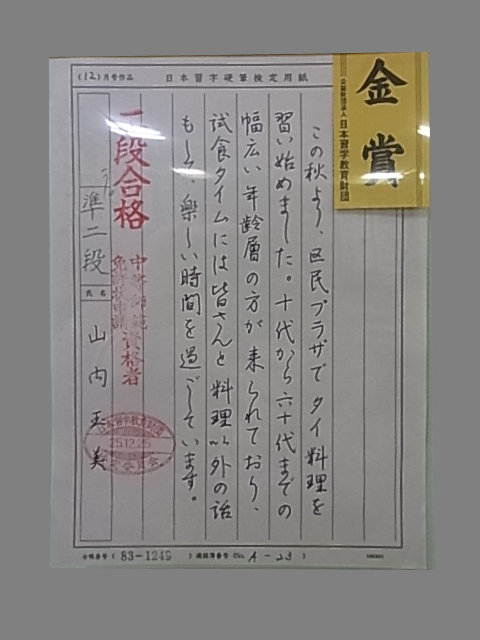 (12)月号作品
日本習字硬筆検定用紙
金賞
公益財団法人 日本習字教育財団
この秋より、区民プラザでタイ料理を
習い始めました。十代から六十代までの
幅広い年齢層の方が来られており、
試食タイムには皆さんと料理以外の話
もして、楽しい時間を過ごしています。
段合格
中等師範資格者
準二段
氏名
山内玉美
日本習字教育財団
25.12.25
会員番号(83-1249)連絡簿番号(No. A-23)